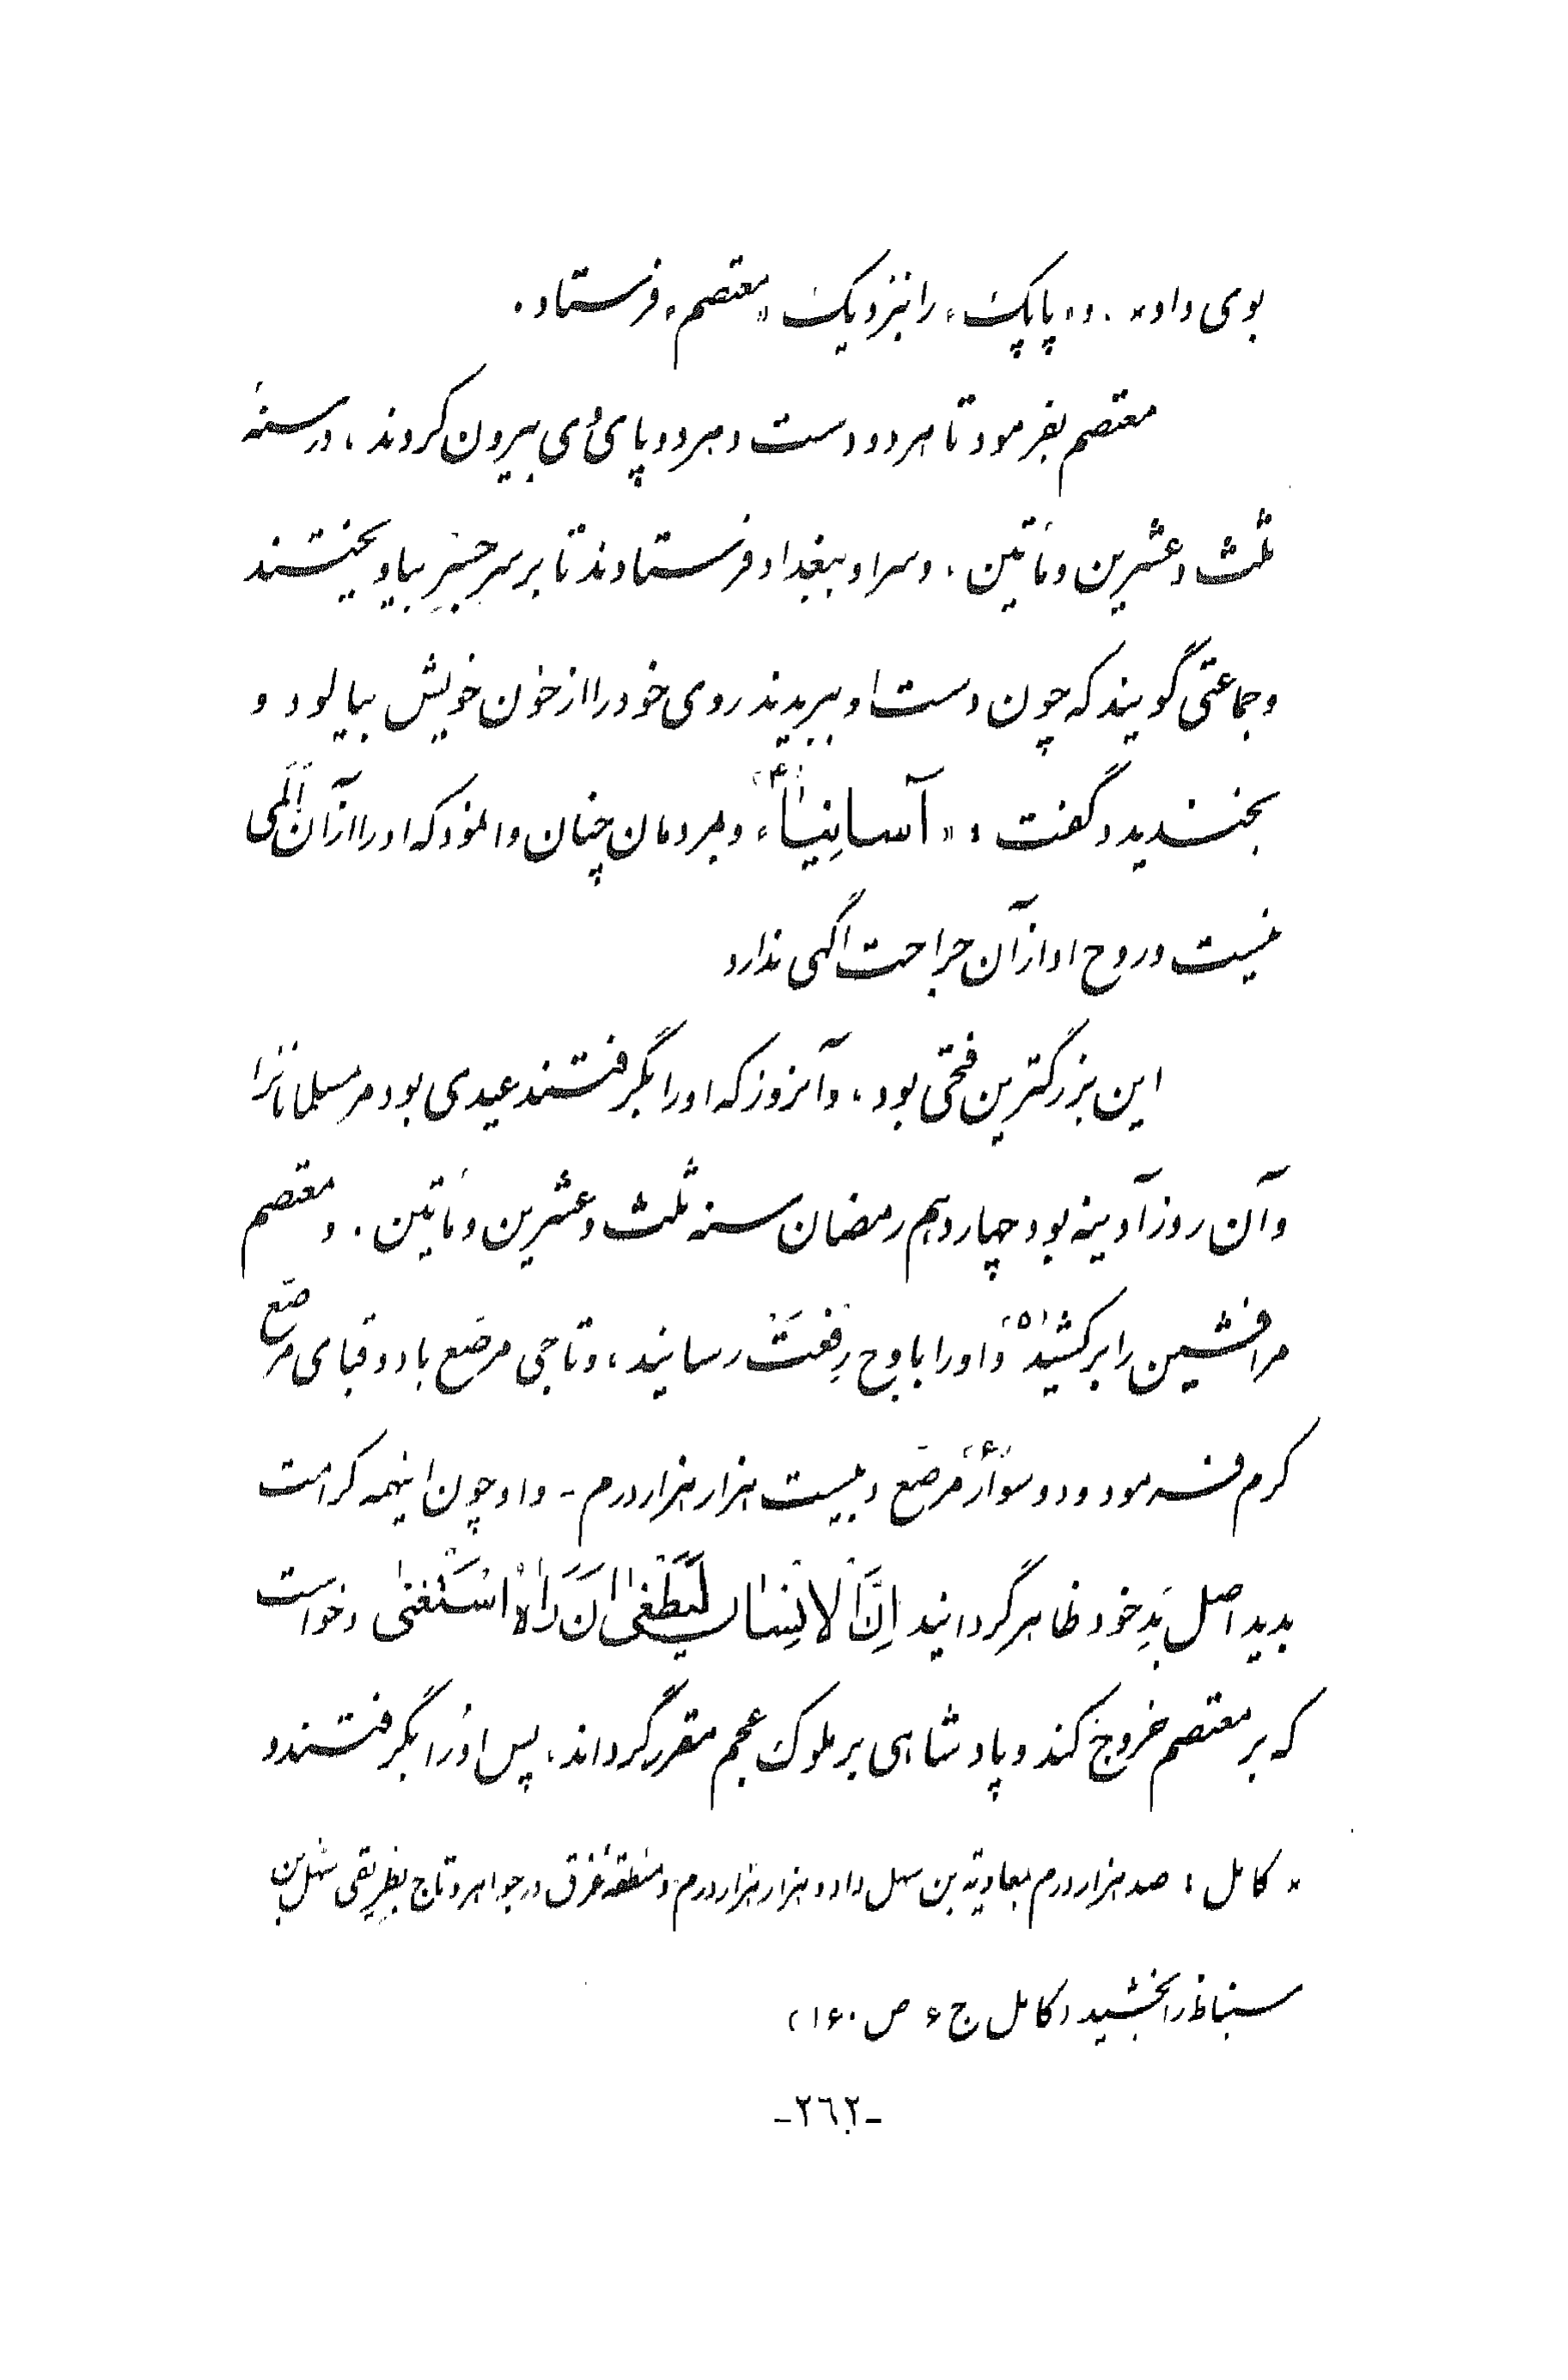 بوی داد× . و «پاپک» را نبزدیک «معتصم» فرستاد .
معتصم بفرمود تا هر دو دست و هر دو پای وی بیرون کردند ، در سنهٔ
ثلث و عشرین و مأتین ، و سر او ببغداد فرستادند تا بر سر جسر بیاویختند
و جماعتی گویند که چون دست او ببریدند روی خود را از خون خویش بیالود و
بخندید و گفت : « آسانِیٰا (۴)» و بمردمان چنان وانمود که او را از آن اَلَمی
نیست و روح او از آن جراحت آگهی ندارد
این بزرگترین فتحی بود ، و آنروز که او را بگرفتند عیدی بود مر مسلمانانرا
و آن روز آدینه بود چهاردهم رمضان سنه ثلث و عشرین و مأتین . و معتصم
مر افشین را برکشید (۵) و او را باوج رِفعَت رسانید ، و تاجی مرصّع باد و قبای مرصّع
کرم فرمود و دو سوار (۶) مرصّع و بیست هزار هزار درم - و او چون اینهمه کرامت
بدید اصل بَدِ خود ظاهر گردانید اِنَّ الْاِنْسٰانَ لَیَطْغیٰ اَنْ رَاٰهُ اسْتَغْنیٰ و خواست
که بر معتصم خروج کند و پادشاهی بر ملوک عجم مقرر گرداند ، پس او را بگرفتند و
× کامل : صد هزار درم بمعاویة بن سهل داد و هزار هزار درم و منطقهٔ غرق در جواهر و تاج بطریقی سهل بن
سنباط را بخشید (کامل ج ۶ ص ۱۶۰)
-٢٦٢-